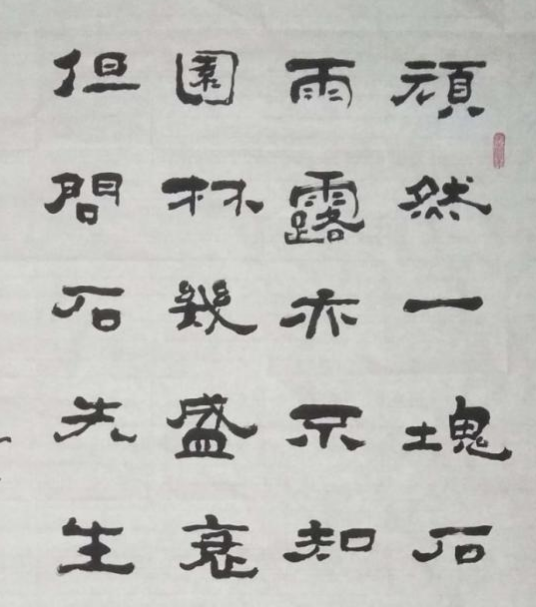 頑然一塊石
雨露亦不知
園林幾盛衰
但問石先生